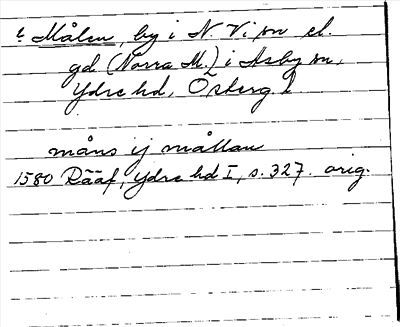 t Målen, by i N. Vi sn el.
gd (Norra M.) i Asby sn,
Ydre hd, Östergl
måns ij mållan
1580 Rääf, Ydre hd I, s. 327. orig.